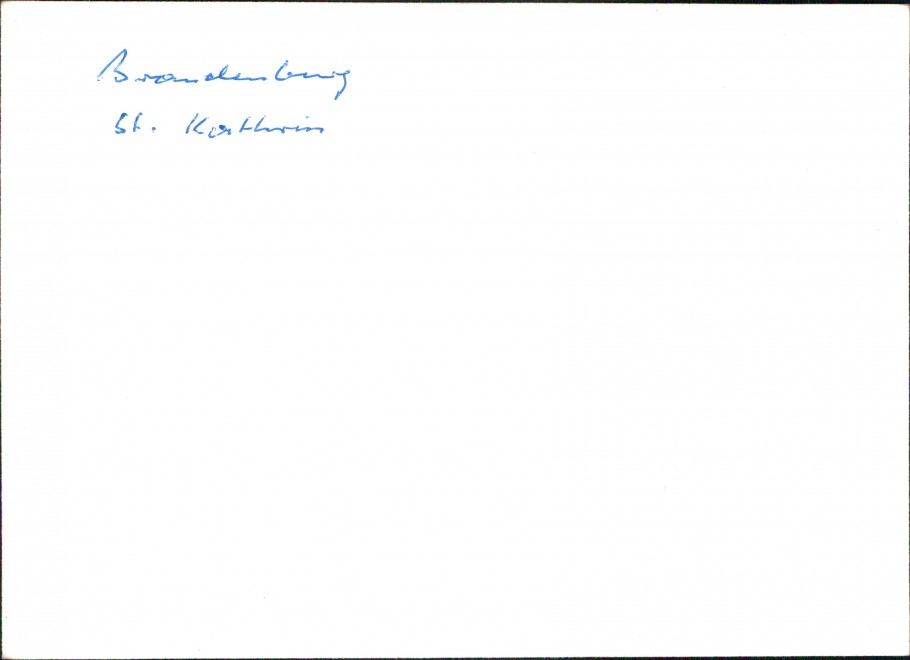 Brandenburg
St. Kathrin